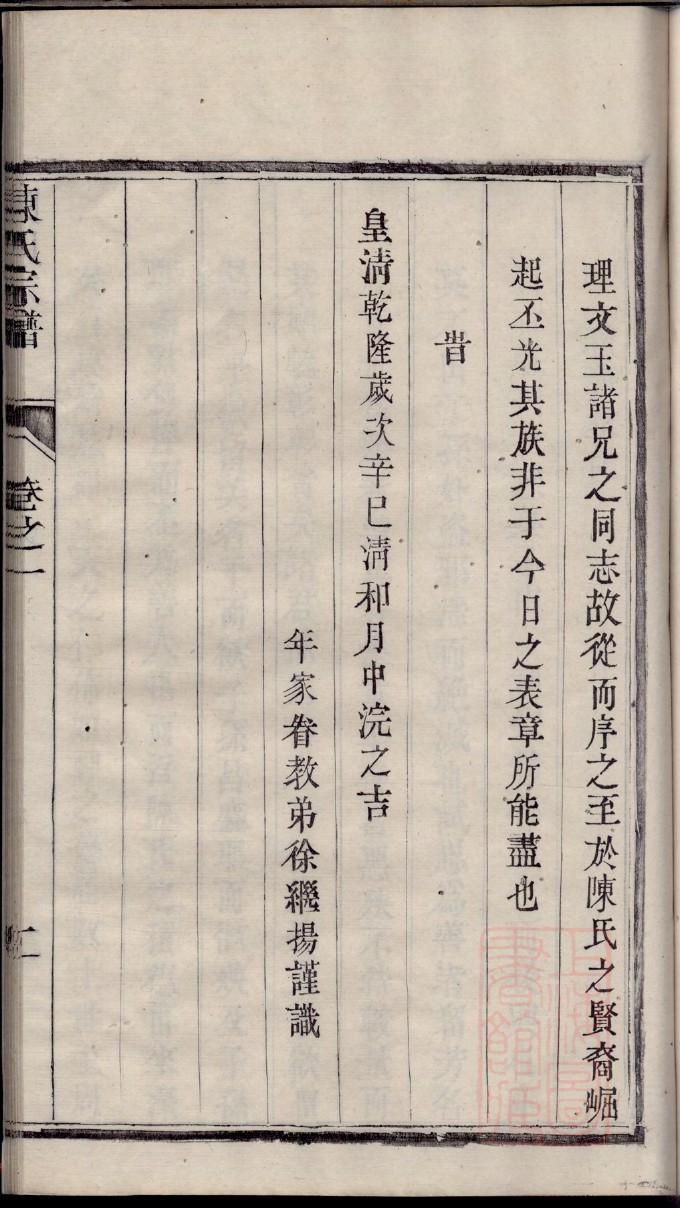 理文玉諸兄之同志故從而序之至於陳氏之賢裔崛
起丕光其族非于今日之表章所能盡也
旹
皇清乾隆歲次辛巳清和月中浣之吉
年家眷教弟徐繼揚謹識
陳氏宗譜
卷之一
二